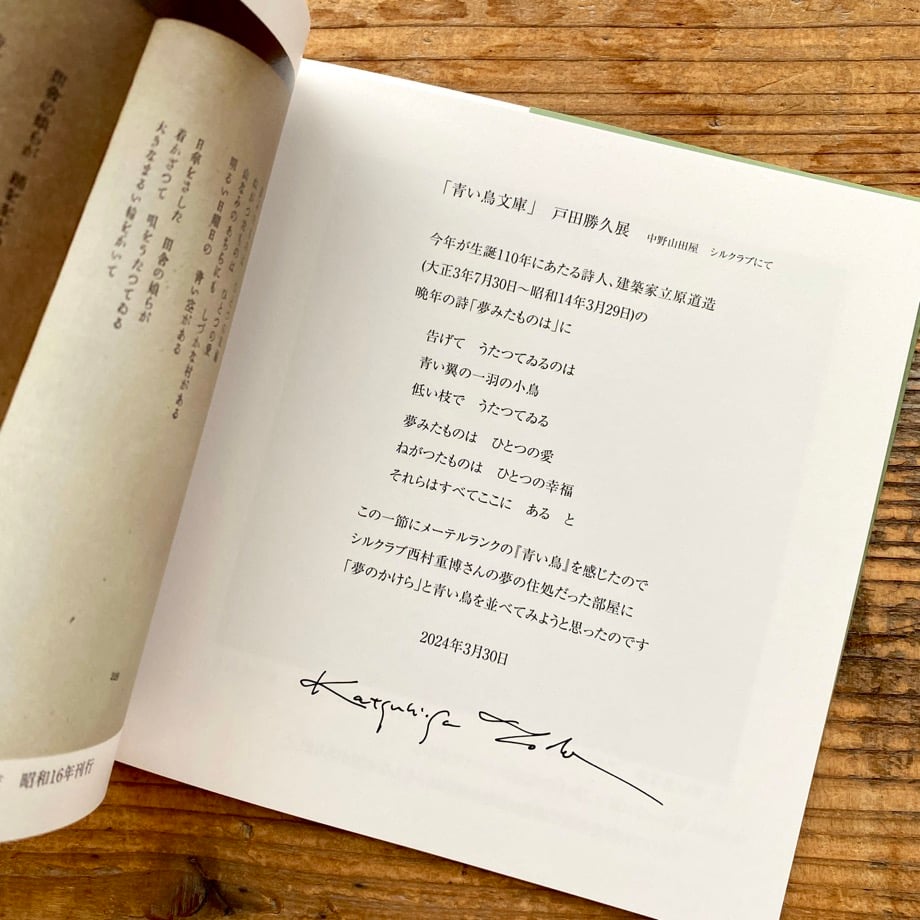 山なみのあちらにも　しづかな村がある
明るい日曜日の　青い空がある
日傘をさした　田舎の娘らが
着かざつて　唄をうたつてゐる
大きなまるい輪をかいて
昭和16年刊行
「青い鳥文庫」　戸田勝久展　中野山田屋　シルクラブにて
今年が生誕110年にあたる詩人、建築家立原道造
(大正3年7月30日～昭和14年3月29日)の
晩年の詩「夢みたものは」に
告げて　うたつてゐるのは
青い翼の一羽の小鳥
低い枝で　うたつてゐる
夢みたものは　ひとつの愛
ねがつたものは　ひとつの幸福
それらはすべてここに　ある　と
この一節にメーテルランクの『青い鳥』を感じたので
シルクラブ西村重博さんの夢の住処だった部屋に
「夢のかけら」と青い鳥を並べてみようと思ったのです
2024年3月30日
Katsuhisa Toda